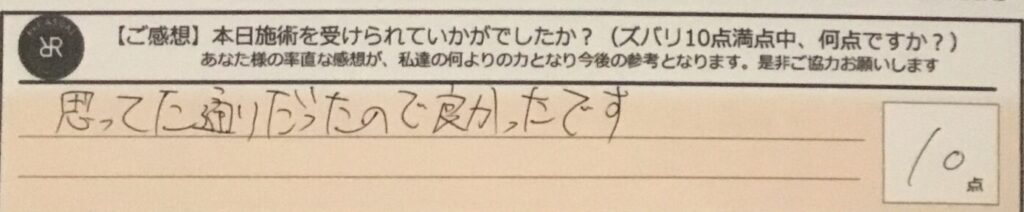 【ご感想】本日施術を受けられていかがでしたか？（ズバリ10点満点中、何点ですか？）
あなた様の率直な感想が、私達の何よりの力となり今後の参考となります。是非ご協力お願いします
思ってた通りだったので良かったです
10
点